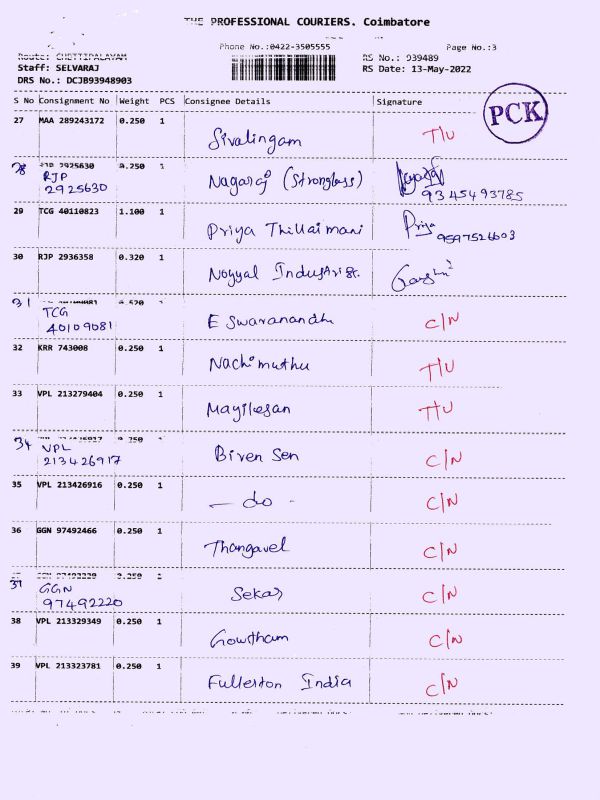 THE PROFESSIONAL COURIERS. Coimbatore
Phone No.:0422-3505555 Page No.:3
Route: CHETTIPALAYAM RS No.: 939489
Staff: SELVARAJ RS Date: 13-May-2022
DRS No.: DCJB93948903
S No Consignment No Weight PCS Consignee Details Signature
PCK
27 MAA 289243172 0.250 1 Sivalingam T/U
28 RJP 2925630 0.250 1 Nagaraj (Stronglass)
RJP
2925630 9345493785
29 TCG 40110823 1.100 1 Priya Thillaimani Priya
9597526603
30 RJP 2936358 0.320 1 Noyyal
31 0.520 1 E Swaranandhu C/N
TCG
40109081
32 KRR 743008 0.250 1 Nachimuthu T/U
33 VPL 213279404 0.250 1 Mayilesan T/U
34 0.250 1 Biren Sen C/N
VPL
213426917
35 VPL 213426916 0.250 1 - do - C/N
36 GGN 97492466 0.250 1 Thangavel C/N
37 GGN 97492220 0.250 1 Sekar C/N
GGN
97492220
38 VPL 213329349 0.250 1 Gowtham C/N
39 VPL 213323781 0.250 1 Fullerton India C/N